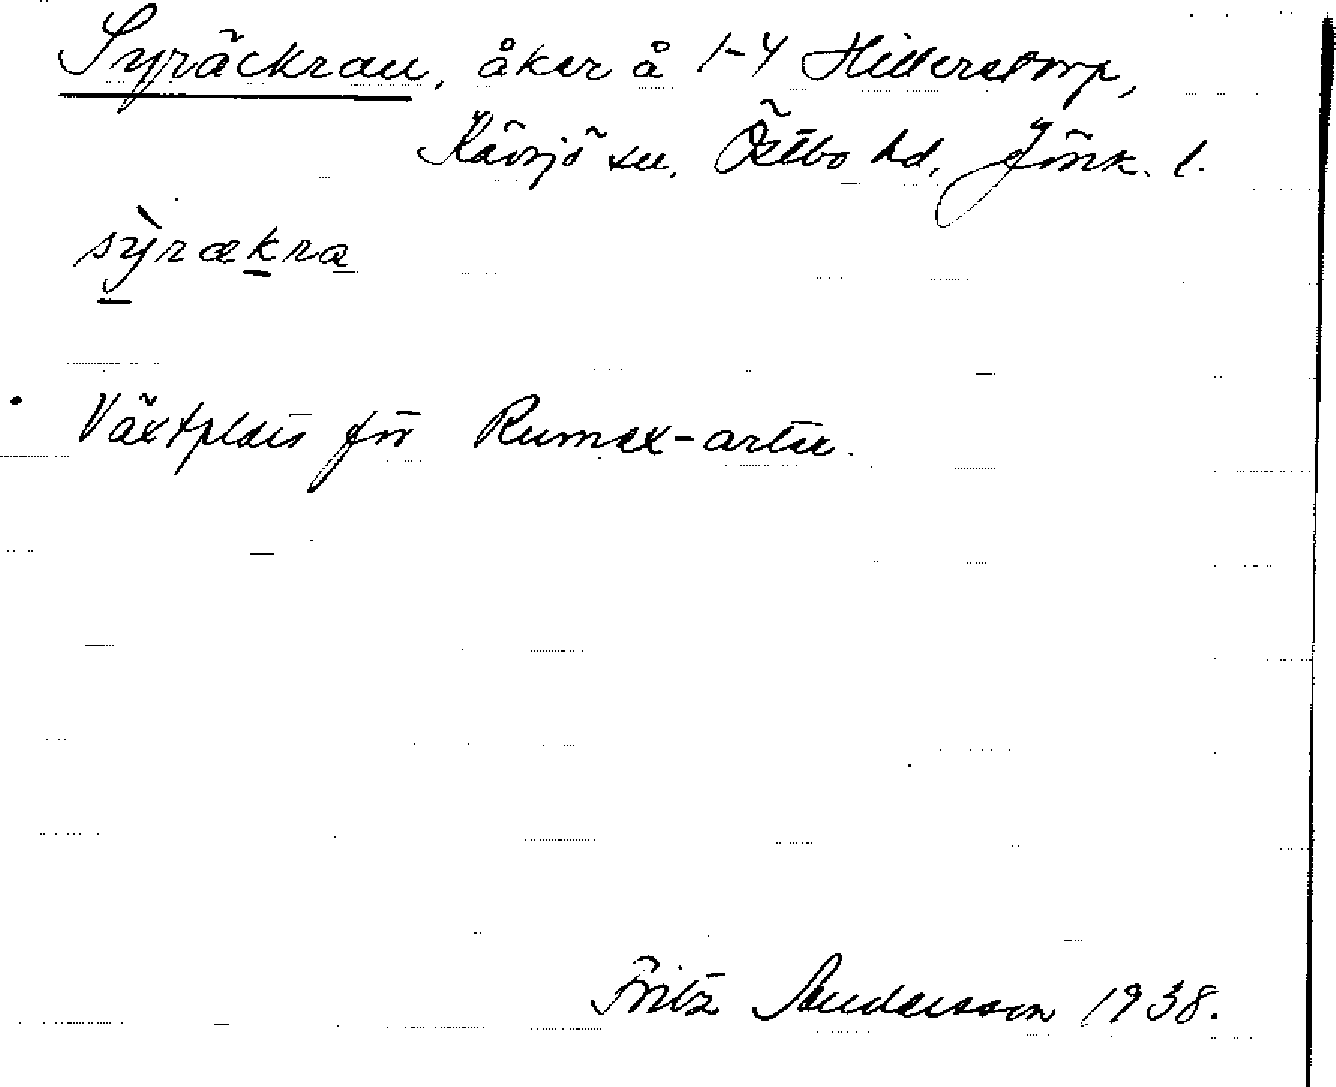 Syräckran, åker å 1-4 Hillerstorp,
Kävsjö sn, Östbo hd, Jönk. l.
sỳrækra
Växtplats för Rumex-arter.
Fritz Andersson 1938.